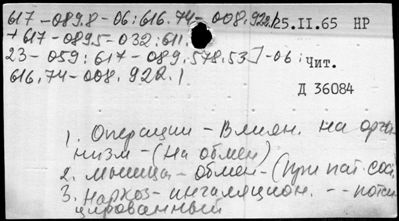 617-089.8-06:616.74-008.922.1 25.II.65 НР
+617-089.5-032:611.
23-059:617-089.578.53]-06: Чит.
616.74-008.922.1
Д 36084
1. Операции - Влиян. на орга
низм - (на обмен)
2. мышца - обмен - (при пат. сос
3. Наркоз - ингаляцион. -- потен
цированный